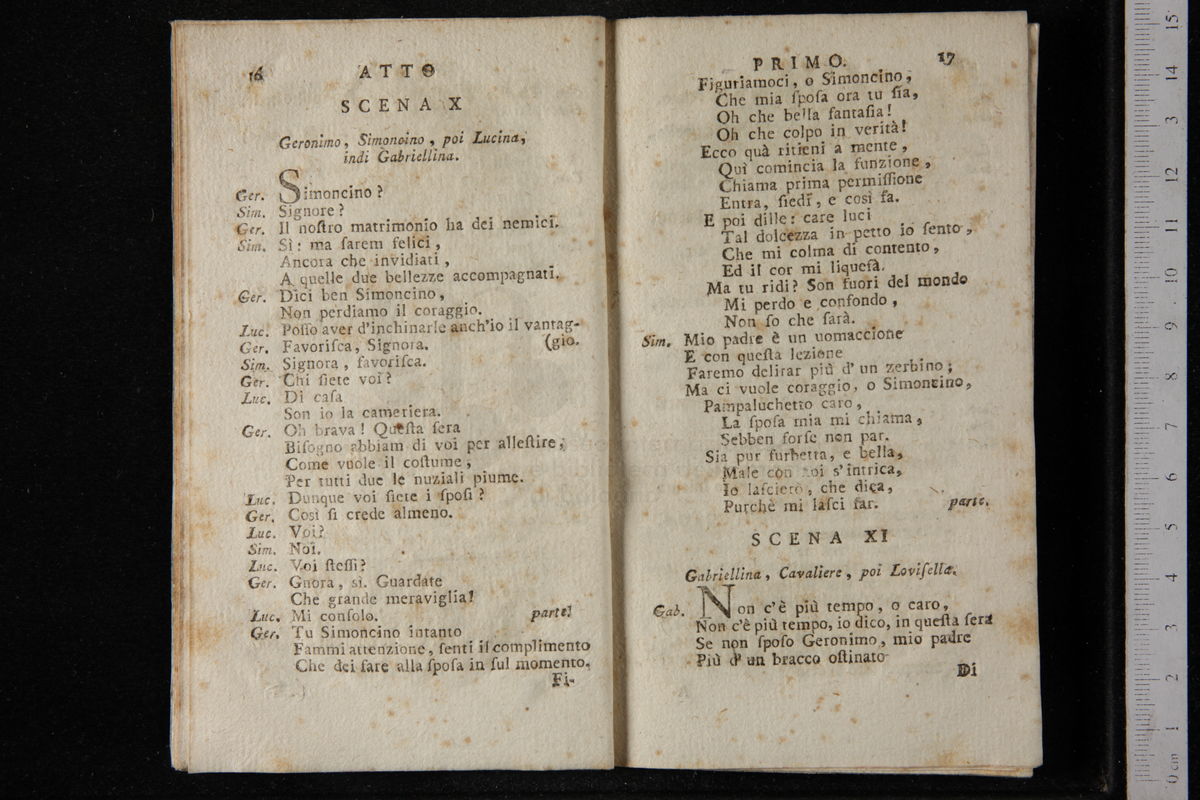 16 ATTO
SCENA X
Geronimo, Simoncino, poi Lucina,
indi Gabriellina.
Ger. Simoncino?
Sim. Signore?
Ger. Il noſtro matrimonio ha dei nemici.
Sim. Sì: ma ſarem felici,
Ancora che invidiati,
A quelle due bellezze accompagnati.
Ger. Dici ben Simoncino,
Non perdiamo il coraggio.
Luc. Poſſo aver d'inchinarle anch'io il vantag-
Ger. Favoriſca, Signora. (gio.
Sim. Signora, favoriſca.
Ger. Chi ſiete voi?
Luc. Di caſa
Son io la cameriera.
Ger. Oh brava! Queſta ſera
Biſogno abbiam di voi per alleſtire,
Come vuole il coſtume,
Per tutti due le nuziali piume.
Luc. Dunque voi ſiete i ſpoſi?
Ger. Così ſi crede almeno.
Luc. Voi?
Sim. Noi.
Luc. Voi ſteſſi?
Ger. Gnora, sì. Guardate
Che grande meraviglia!
Luc. Mi conſolo. parte.
Ger. Tu Simoncino intanto
Fammi attenzione, ſenti il complimento
Che dei fare alla ſpoſa in ſul momento.
Fi-
PRIMO. 17
Figuriamoci, o Simoncino,
Che mia ſpoſa ora tu ſia,
Oh che bella fantaſia!
Oh che colpo in verità!
Ecco quà ritieni a mente,
Quì comincia la funzione,
Chiama prima permiſſione
Entra, ſiedi, e così fa.
E poi dille: care luci
Tal dolcezza in petto io ſento,
Che mi colma di contento,
Ed il cor mi liquefà.
Ma tu ridi? Son fuori del mondo
Mi perdo e confondo,
Non ſo che ſarà.
Sim. Mio padre è un uomaccione
E con queſta lezione
Faremo delirar più d'un zerbino;
Ma ci vuole coraggio, o Simoncino,
Pampaluchetto caro,
La ſpoſa mia mi chiama,
Sebben forſe non par.
Sia pur furbetta, e bella,
Male con noi s'intrica,
Io laſcierò, che dica,
Purchè mi laſci far. parte.
SCENA XI
Gabriellina, Cavaliere, poi Loviſella.
Gab. Non c'è più tempo, o caro,
Non c'è più tempo, io dico, in queſta ſera
Se non ſpoſo Geronimo, mio padre
Più d'un bracco oſtinato
Di